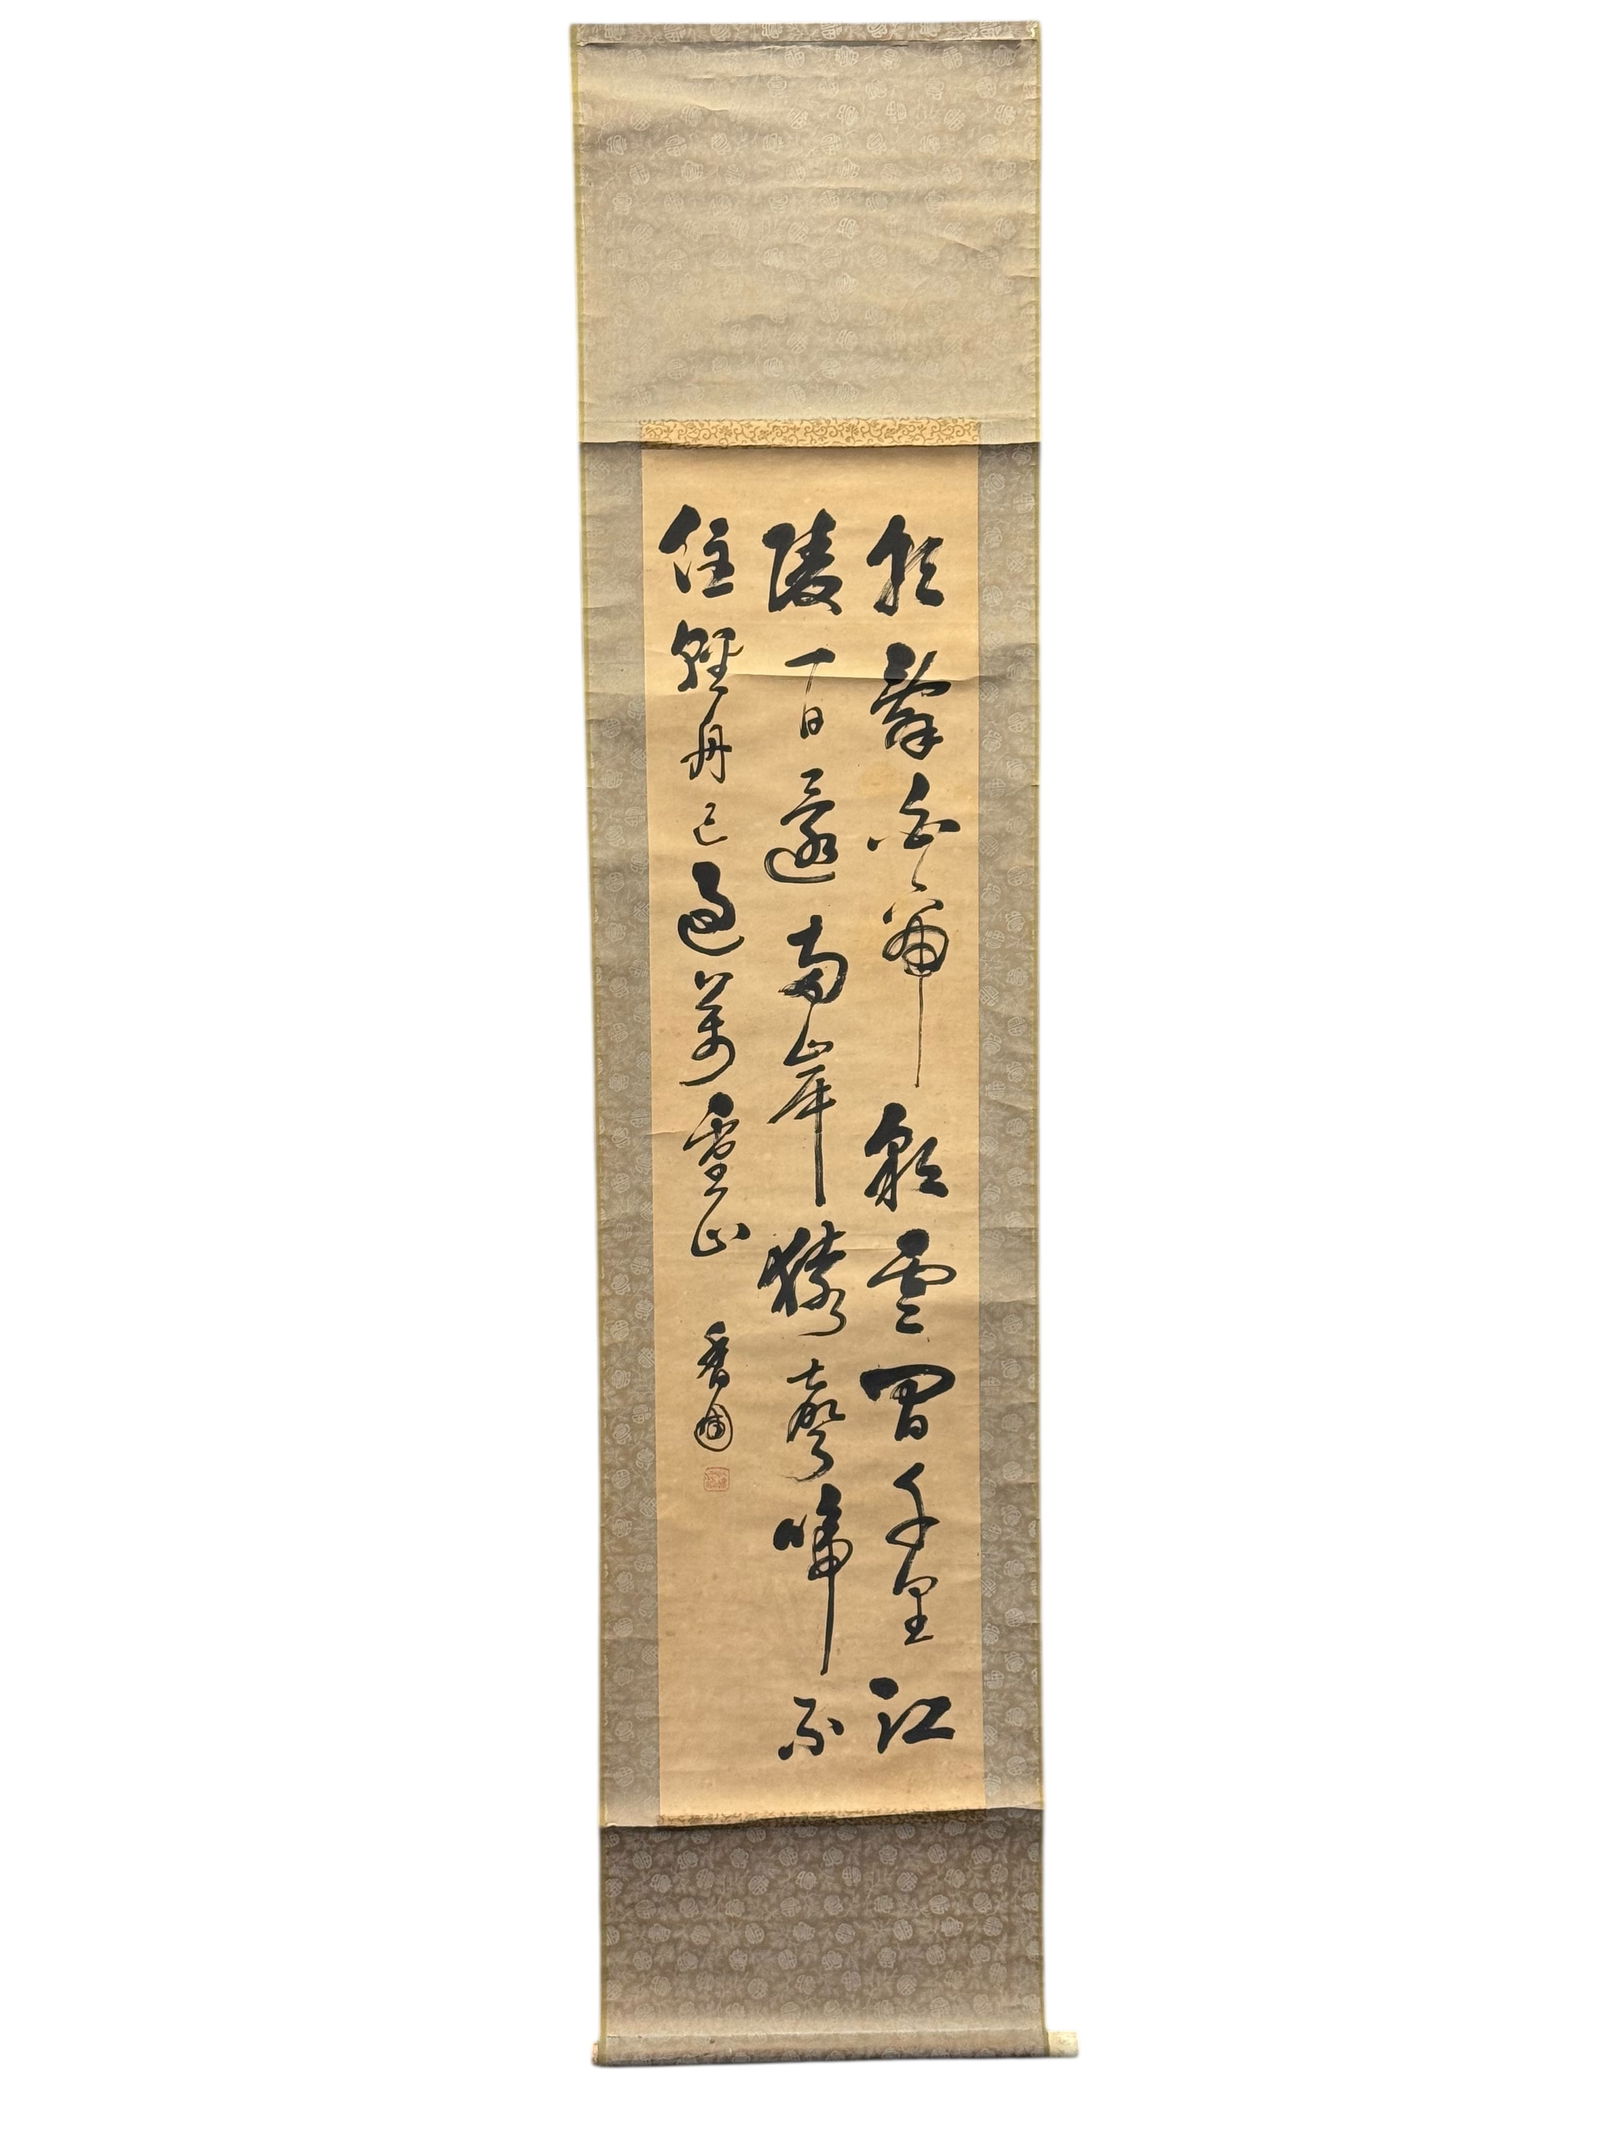 朝辭白帝彩雲間千里江
陵一日還兩岸猿聲啼不
住輕舟已過萬重山 香圃